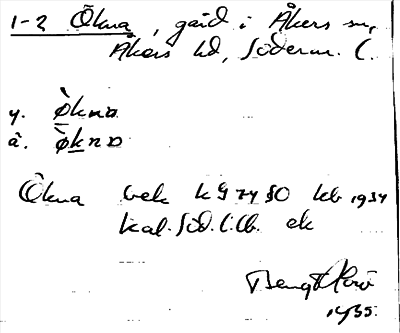 1-2 Ökna, gård i Åkers sn,
Åkers hd, Söderm. l.
y. ø̀kna
ä. ø̀kna
Ökna bek kg 74 80 kb 1934
kal. Söd. l. lb. ek
Bengt
1935.